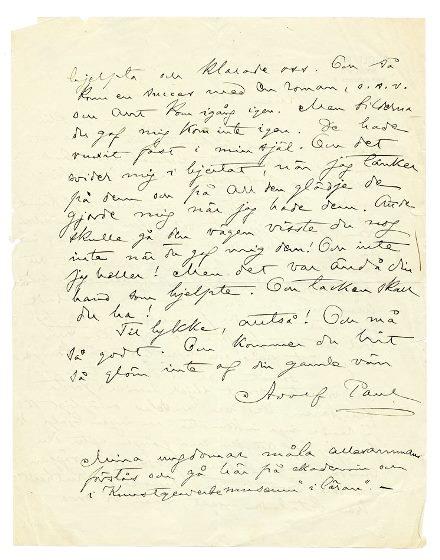 hjelpte och klarade oss. Och så
kom en succes med en roman, o.s.v.
och allt kom igång igen. Men bilderna
du gaf mig kom inte igen. De hade
vuxit fast i min själ. Och det
vrider mig i hjertat, när jag tänker
på dem och på all den glädje de
gjorde mig när jag hade dem.
skulle gå den vägen visste du nog
inte när du gaf mig dem! Och inte
jag heller! Men det var ändå din
hand som hjelpte. Och tacken skall
du ha!
Til lykke, altså! Och må
så godt. Och kommer du hit
så glöm inte af din gamle vän
Adolf Paul
Mina ungdomar måla allesammans
förstås och gå här på akademin och
i "Kunstgewerbemuseum" i läran". —